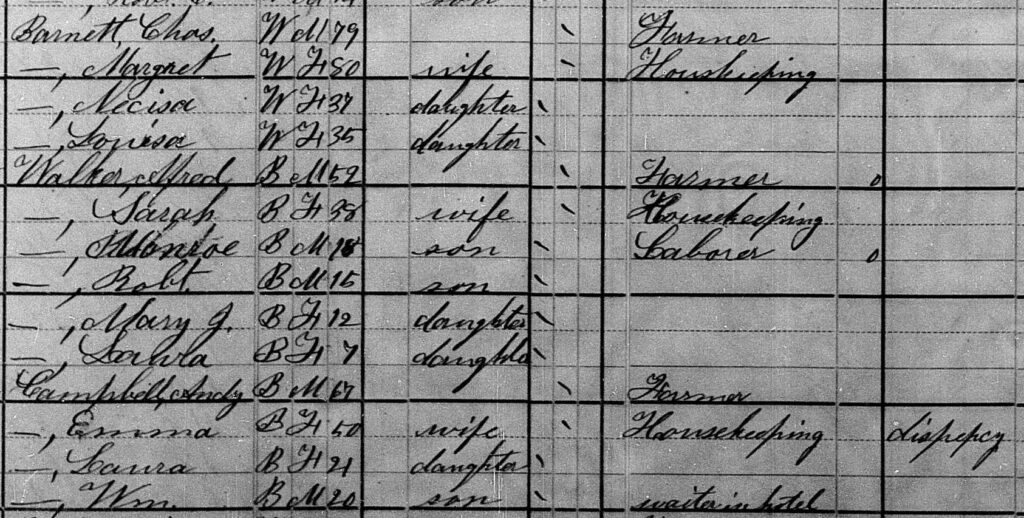 Barnett, Chas. W M 79 Farmer
—, Margret W F 80 wife Houskeeping
—, Necisa W F 37 daughter
—, Louisa W F 35 daughter
Walker, Alfred B M 52 Farmer 0
—, Sarah B F 38 wife Housekeeping
—, Monroe B M 18 son Laborer 0
—, Robt. B M 15 son
—, Mary J. B F 12 daughter
—, Laura B F 7 daughter
Campbell, Andy B M 67 Farmer
—, Emma B F 50 wife Housekeeping dispepcy
—, Laura B F 21 daughter
—, Wm. B M 20 son waiter in hotel